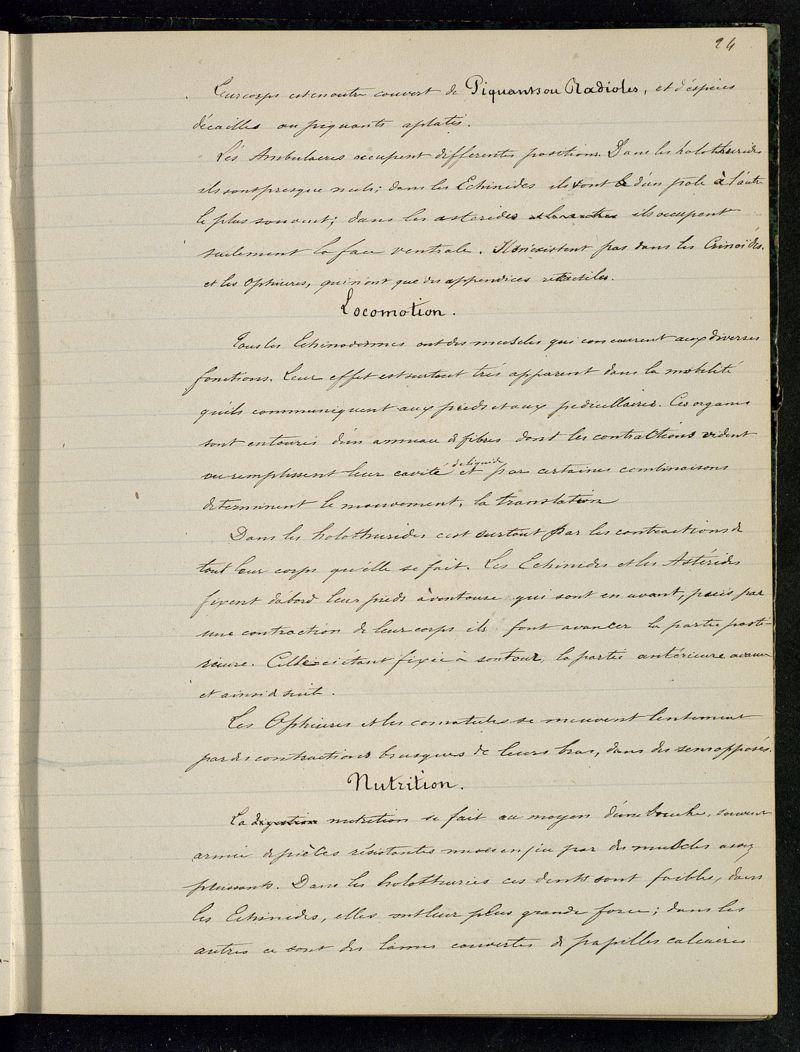 24
Leur corps est en outre couvert de Piquants ou Radioles, et d'espèces
décailles ou piquants aplatis.
Les Ambulacres occupent differentes positions. Dans les holothurides
ils sont presque nuls; dans les Echinides ils vont d'un pole à l'autre
le plus souvent; dans les asterides ils occupent
seulement la face ventrale. Ils n'existent pas dans les Crinoïdes
et les Ophiures, qui n'ont que des appendices rétractiles.
Locomotion.
Tous les Echinodermes ont des muscles qui concourent aux diverses
fonctions. Leur effet est surtout très apparent dans la mobilité
qu'ils communiquent aux pieds et aux pedicellaires. Ces organes
sont entourés d'un anneau de fibres dont les contractions vident
ou remplissent leur cavité de liquide et par certaines combinaisons
déterminent le mouvement, la translation
Dans les holothurides c'est surtout par les contractions de
tout leur corps qu'elle se fait. Les Echinides et les Astérides
fixent dabord leur pieds à ventouse qui sont en avant, puis par
une contraction de leur corps ils font avancer la partie posté-
rieure. Celle-ci étant fixée à son tour, la partie antérieure avance
et ainsi de suite.
Les Ophiures et les comatules se meuvent lentement
par des contractions brusques de leurs bras, dans des sens opposés.
Nutrition.
La digestion nutrition se fait au moyen d'une bouche, souvent
armée de pièces résistantes mues en jeu par des muscles assez
puissants. Dans les holothuries ces dents sont faibles, dans
les Echinides, elles ont leur plus grande force; dans les
autres ce sont des lames couvertes de papilles calcaires